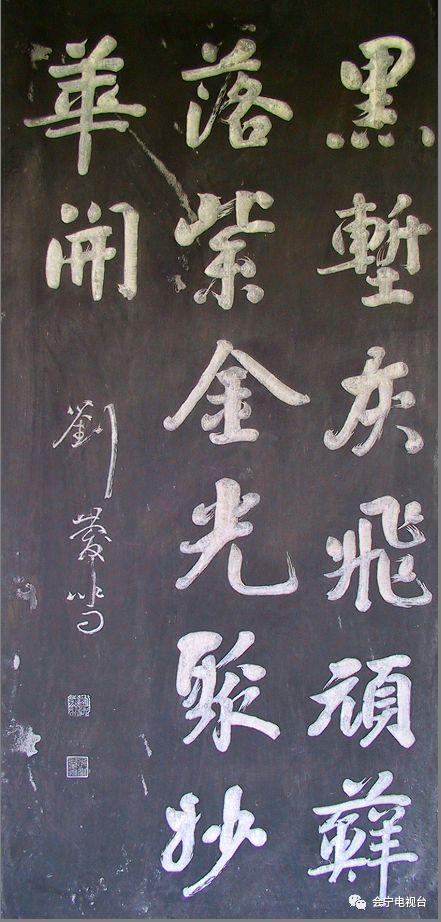 黑塹灰飛頑蘚
落紫金光聚妙
華開
劉慶篤
会宁电视台